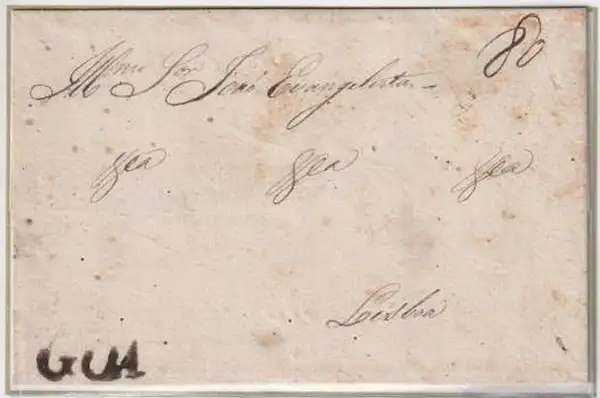 80
Illmo Snr José Evangelista
&ca &ca &ca
Lisboa
GOA